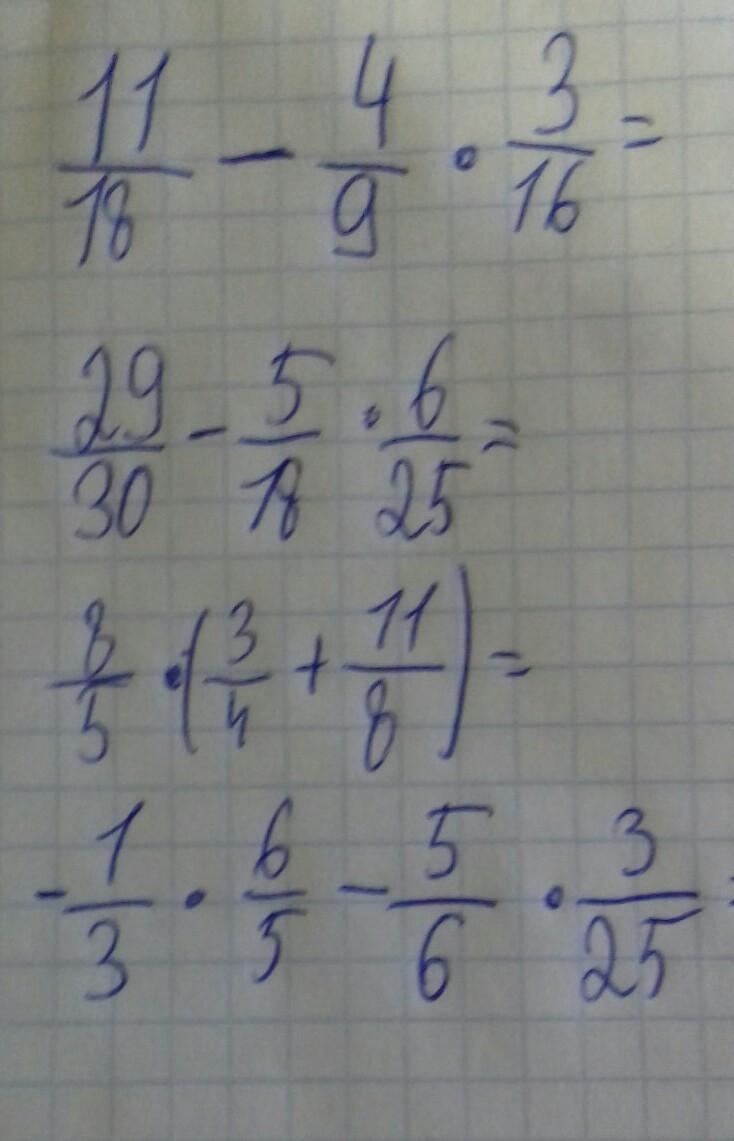 11/18 - 4/9 · 3/16 =
29/30 - 5/18 · 6/25 =
8/5 · (3/4 + 11/8) =
-1/3 · 6/5 - 5/6 · 3/25 =